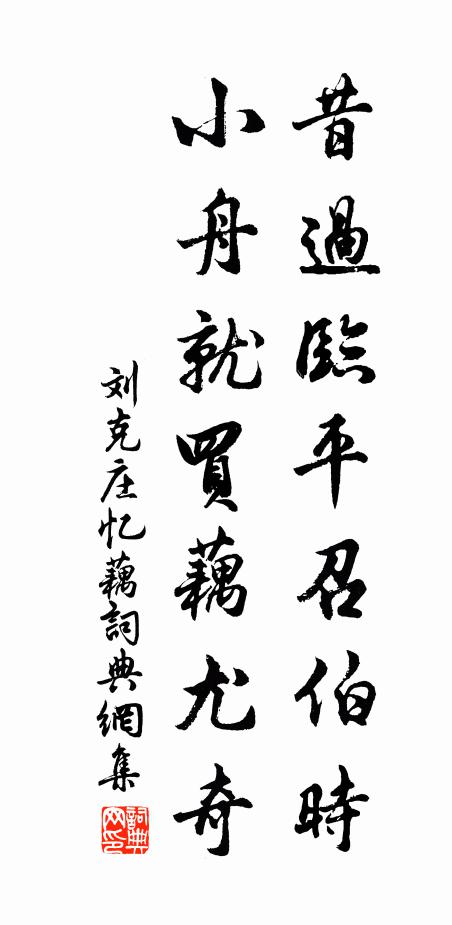 昔過臨平召伯時
小舟就買藕尤奇
刘克庄忆藕詞典網集
詞典
网印